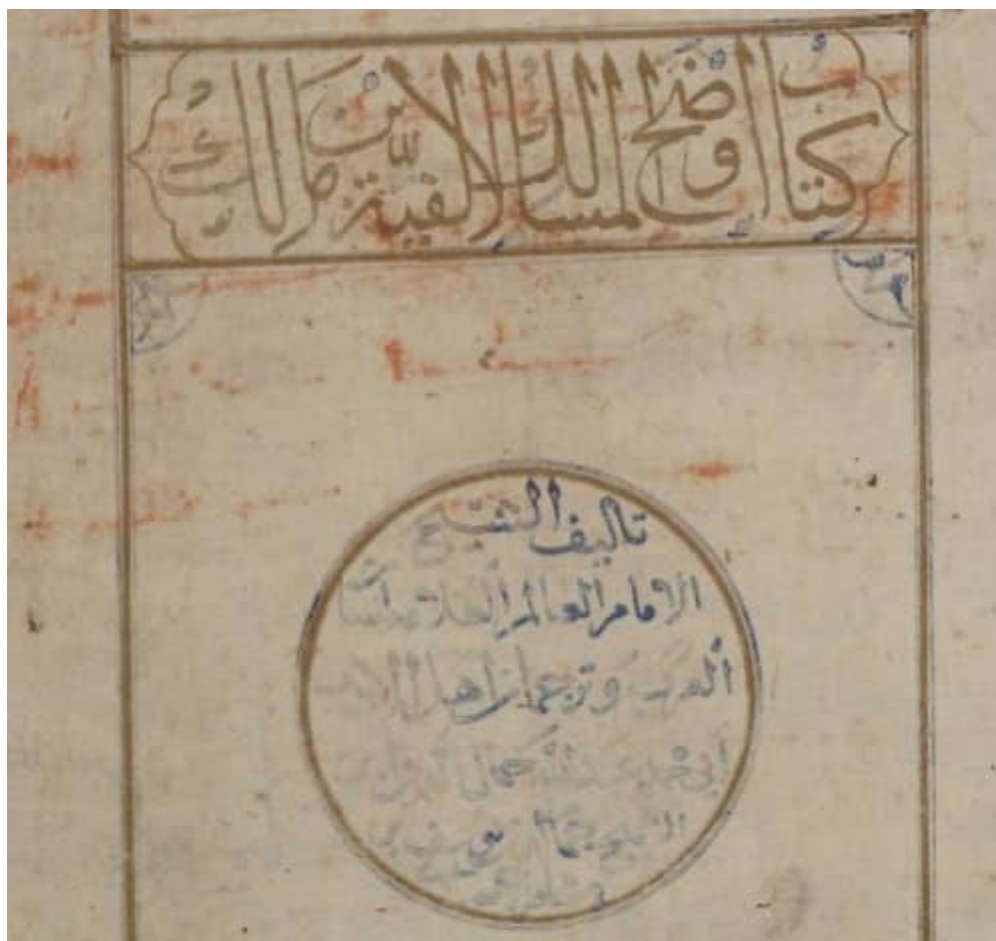 كتاب أوضح المسالك لالفية ابن مالك
تاليف الشيخ
الامام العالم العلامة لسان
العرب وترجمان اهل الادب
ابي محمد عبد الله جمال الدين
يوسف بن